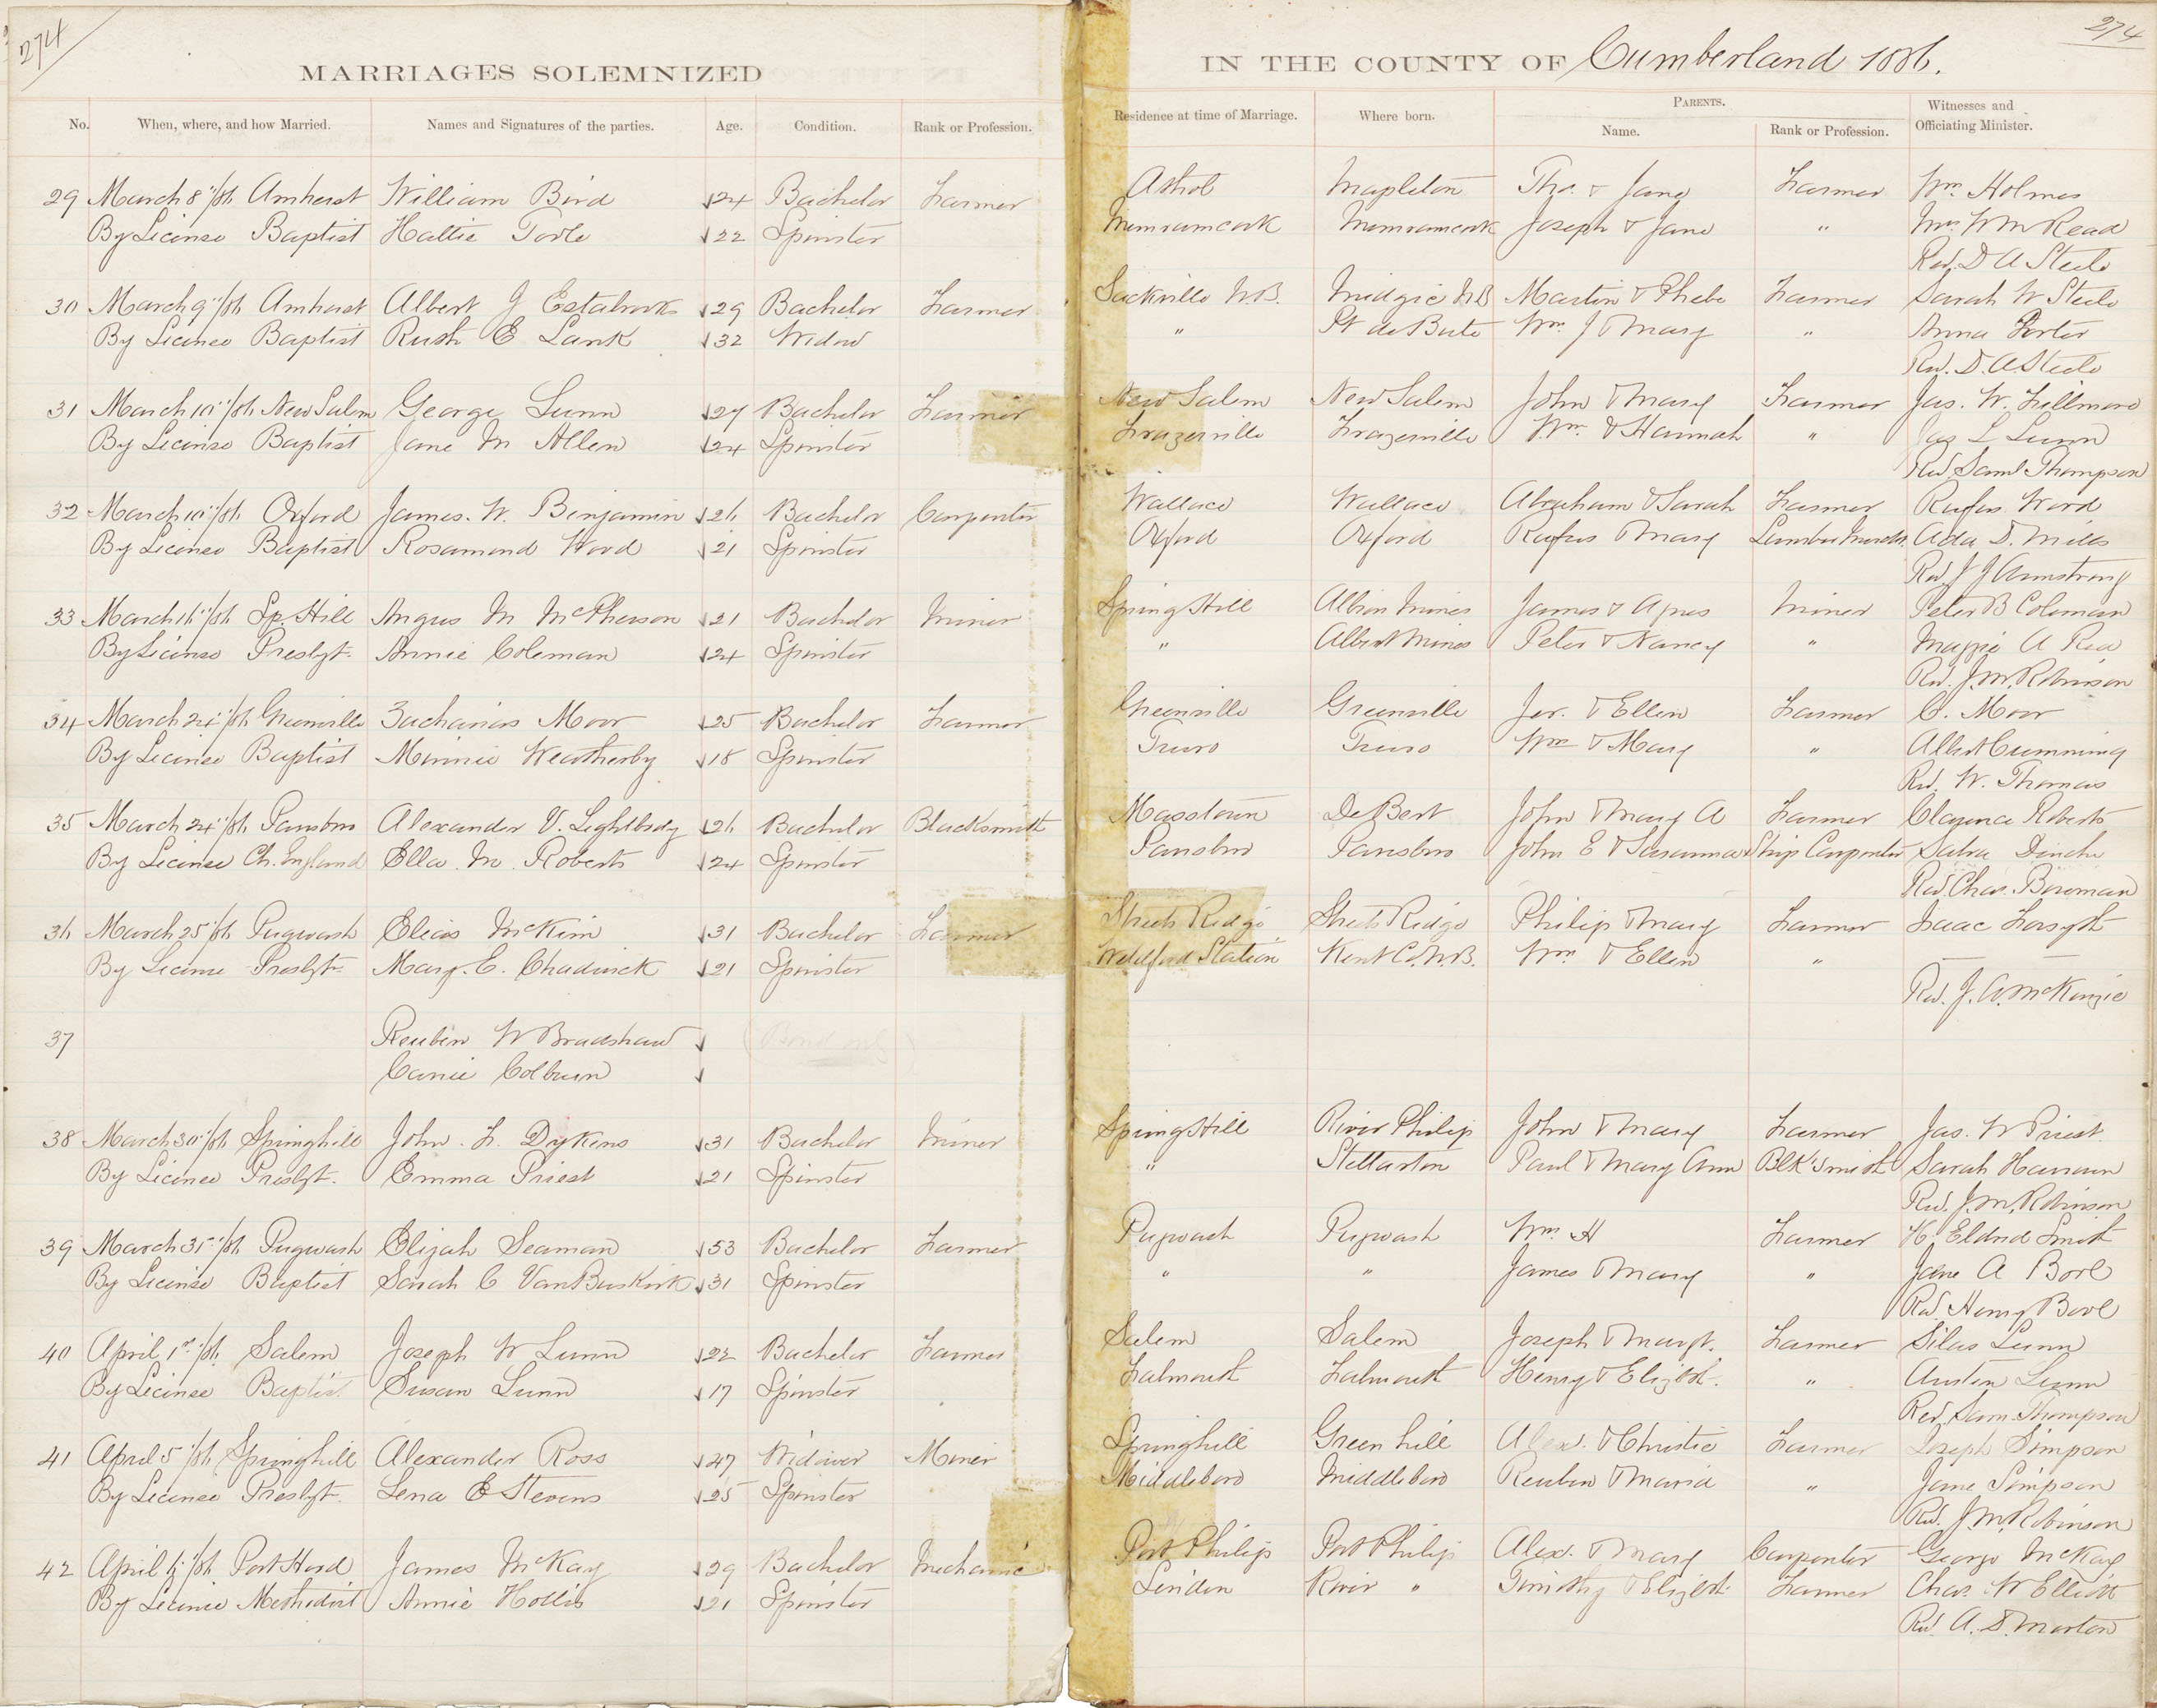 274
274
MARRIAGES SOLEMNIZED IN THE COUNTY OF Cumberland 1886.
No. When, where, and how Married. Names and Signatures of the parties. Age. Condition. Rank or Profession. Residence at time of Marriage. Where born. PARENTS. Name. Rank or Profession. Witnesses and Officiating Minister.
29 March 8"/86 Amherst William Bird 24 Bachelor Farmer Athol Mapleton Tho. & Jane Farmer Wm Holmes
By License Baptist Hattie 22 Spinster Memramcook Memramcook Joseph & Jane " Mrs. Wm Read
Rev. D A Steele
30 March 9"/86 Amherst Albert J Estabrooks 29 Bachelor Farmer Sackville N.B. Midgic NB Martin & Phebe Farmer Sarah W Steele
By License Baptist Ruth E Lank 32 Widow " Pt de Bute Wm J & Mary " Anna Porter
Rev. D. A Steele
31 March 10"/86 New Salem George Lunn 27 Bachelor Farmer New Salem New Salem John & Mary Farmer Jas. W. Fillmore
By License Baptist Jane M Allen 24 Spinster Frazerville Frazerville Wm. & Hannah " Jas L Lunn
Rev. Saml Thompson
32 March 10"/86 Oxford James. W. Benjamin 26 Bachelor Carpenter Wallace Wallace Abraham & Sarah Farmer Rufus Wood
By License Baptist Rosamond Wood 21 Spinster Oxford Oxford Rufus & Mary Lumber Ada D. Mills
Rev J J Armstrong
33 March 16"/86 Sp. Hill Angus M McPherson 21 Bachelor Miner Spring Hill Albion Mines James & Miner Peter B Coleman
By License Presbyt. Annie Coleman 24 Spinster " Albert Mines Peter & Nancy " Maggie A
Rev. J. M. Robinson
34 March 24"/86 Greenville Zacharias Moor 25 Bachelor Farmer Greenville Greenville Jer. & Ellen Farmer C. Moor
By License Baptist Minnie Weatherby 18 Spinster Truro Truro Wm & Mary " Albert Cumming
Rev. W. Thomas
35 March 24"/86 Parrsboro Alexander V. Lightbody 26 Bachelor Blacksmith Masstown DeBert John & Mary A Farmer Clarence Roberts
By License Ch. England Ella M. Roberts 24 Spinster Parrsboro Parrsboro John E & Susanna Ship Carpenter
Rev. Chas. Bowman
36 March 25/86 Pugwash Elias McKim 31 Bachelor Farmer Streets Ridge Streets Ridge Philip & Mary Farmer Isaac Forsyth
By License Presbyt. Mary. E. Chadwick 21 Spinster Weldford Station Kent Co. N.B. Wm & Ellen " —
Rev. J. A. McKenzie
37 Reuben W Bradshaw (Bond only)
Carrie Colburn
38 March 30"/86 Springhill John. F. Dykens 31 Bachelor Miner Spring Hill River Philip John & Mary Farmer Jas. W Priest.
By License Presbyt. Emma Priest 21 Spinster " Stellarton Paul & Mary Ann Blk'Smith Sarah
Rev. J. M. Robinson
39 March 31"/86 Pugwash Elijah Seaman 53 Bachelor Farmer Pugwash Pugwash Wm H Farmer H. Eldred Smith
By License Baptist Sarah C VanBuskirk 31 Spinster " " James & Mary " Jane A Bool
Rev Henry Bool
40 April 1st/86. Salem Joseph W Lunn 22 Bachelor Farmer Salem Salem Joseph & Margt. Farmer Silas Lunn
By License Baptist Susan Lunn 17 Spinster Falmouth Falmouth Henry & Elizbt. " Austin Lunn
Rev. Sam. Thompson
41 April 5/86 Springhill Alexander Ross 47 Widower Miner Springhill Green hill Alex. & Christie Farmer Joseph Simpson
By License Presbyt. Lena E Stevens 25 Spinster Middleboro Middleboro Reuben & Maria " Jane Simpson
Rev. J. M. Robinson
42 April 6"/86 Port Hood James McKay 29 Bachelor Mechanic Port Philip Port Philip Alex. & Mary Carpenter George McKay
By License Methodist Annie Hollis 21 Spinster Linden River " Timothy & Elizbt. Farmer Chas. W Elliott
Rev. A. S. Morton